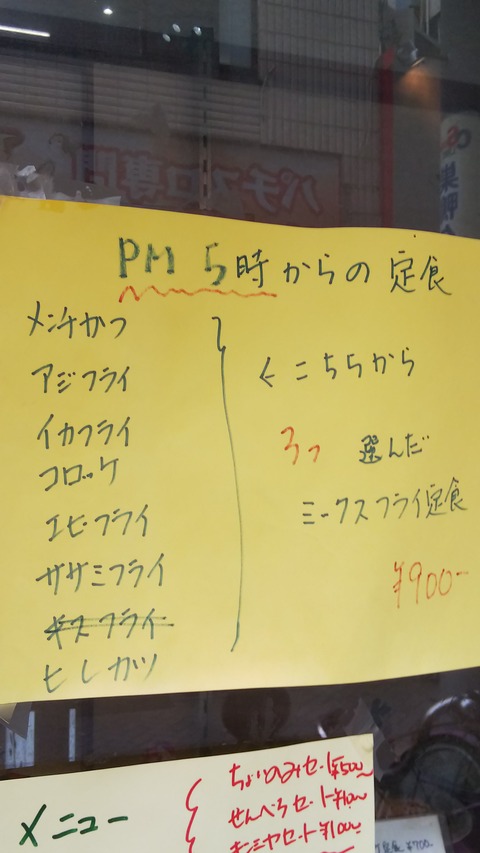 PM 5時からの定食
メンチかつ
アジフライ
イカフライ
コロッケ
エビフライ
ササミフライ
キスフライ
ヒレカツ
←こちらから
3つ 選んだ
ミックスフライ定食
¥900-
メニュー
ちょいのみセット¥500
せんべろセット¥1000
パチスロ専門
定食 ¥700.